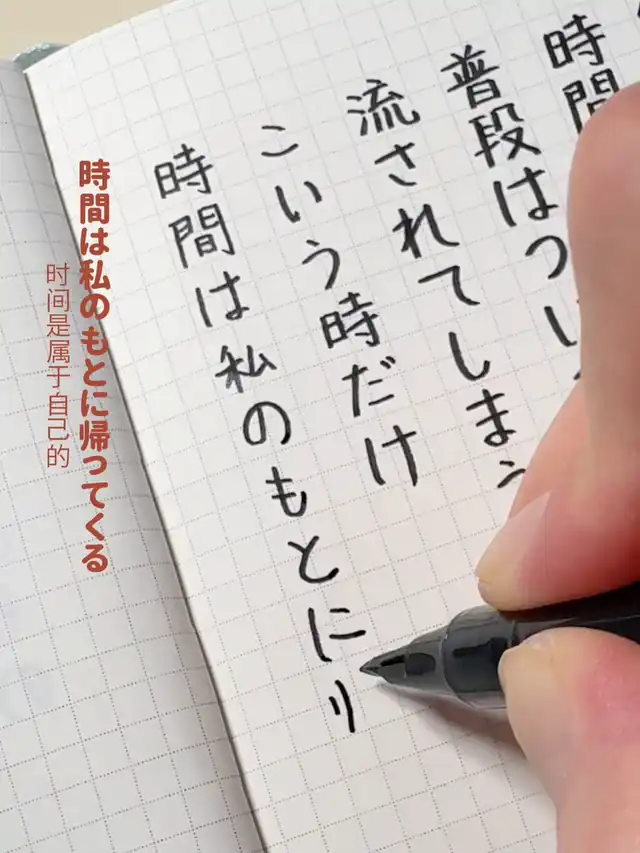 時間
普段はつい
流されてしまう
こういう時だけ
時間は私のもとに
時間は私のもとに帰ってくる
时间是属于自己的